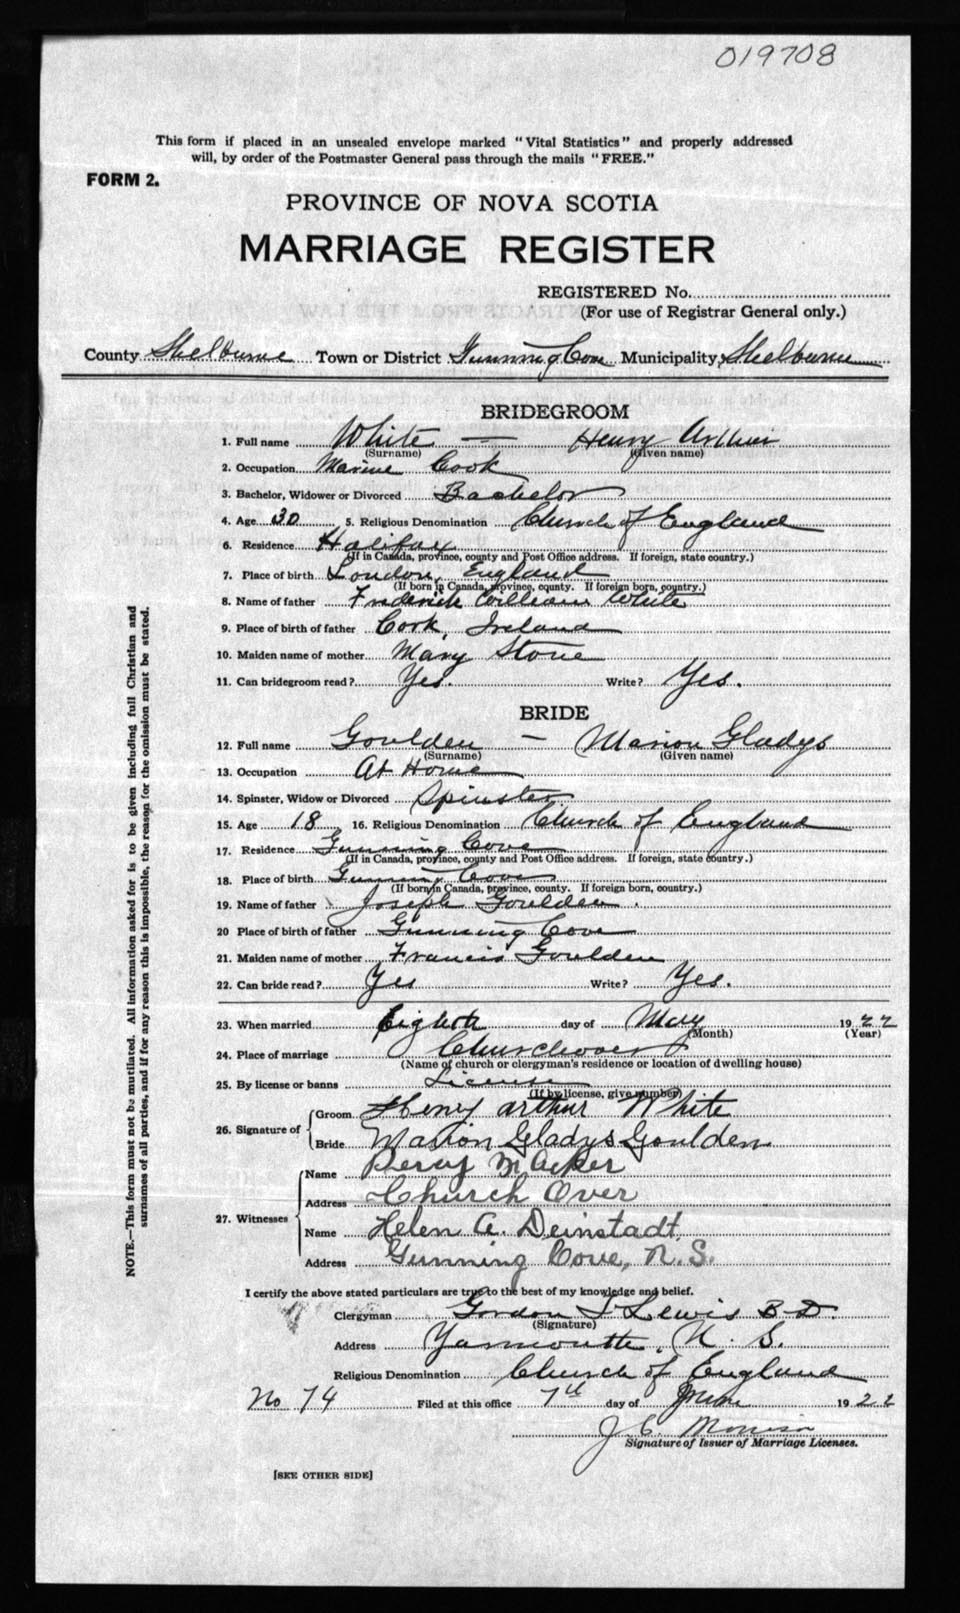 019708
This form if placed in an unsealed envelope marked "Vital Statistics" and properly addressed
will, by order of the Postmaster General pass through the mails "FREE."
FORM 2.
PROVINCE OF NOVA SCOTIA
MARRIAGE REGISTER
REGISTERED No.
(For use of Registrar General only.)
County Shelburne Town or District Gunning Cove Municipality Shelburne
BRIDEGROOM
1. Full name White — Henry Arthur
(Surname) (Given name)
2. Occupation Marine Cook
3. Bachelor, Widower or Divorced Bachelor
4. Age 30 5. Religious Denomination Church of England
6. Residence Halifax
(If in Canada, province, county and Post Office address. If foreign, state country.)
7. Place of birth London, England
(If born in Canada, province, county. If foreign born, country.)
8. Name of father Frederick William White
9. Place of birth of father Cork, Ireland
10. Maiden name of mother Mary Stone
11. Can bridegroom read? Yes. Write? Yes.
BRIDE
12. Full name Goulden — Marion Gladys
(Surname) (Given name)
13. Occupation At Home
14. Spinster, Widow or Divorced Spinster
15. Age 18 16. Religious Denomination Church of England
17. Residence Gunning Cove
(If in Canada, province, county and Post Office address. If foreign, state country.)
18. Place of birth Gunning Cove
(If born in Canada, province, county. If foreign born, country.)
19. Name of father Joseph Goulden.
20 Place of birth of father Gunning Cove
21. Maiden name of mother Francis Goulden
22. Can bride read? Yes Write? Yes.
23. When married Eighth day of May 1922
(Month) (Year)
24. Place of marriage Churchover
(Name of church or clergyman's residence or location of dwelling house)
25. By license or banns License
(If by license, give number)
26. Signature of Groom Henry arthur White
Bride Marion Gladys Goulden
27. Witnesses Name Percy M Acker
Address Church Over
Name Helen A. Deinstadt
Address Gunning Cove, N.S.
I certify the above stated particulars are true to the best of my knowledge and belief.
Clergyman Gordon T Lewis B.D.
(Signature)
Address Yarmouth, N. S.
Religious Denomination Church of England
No 74 Filed at this office 7th day of June 1922
J. C. Morrison
Signature of Issuer of Marriage Licenses.
[SEE OTHER SIDE]
NOTE.—This form must not be mutilated. All information asked for is to be given including full Christian and
surnames of all parties, and if for any reason this is impossible, the reason for the omission must be stated.